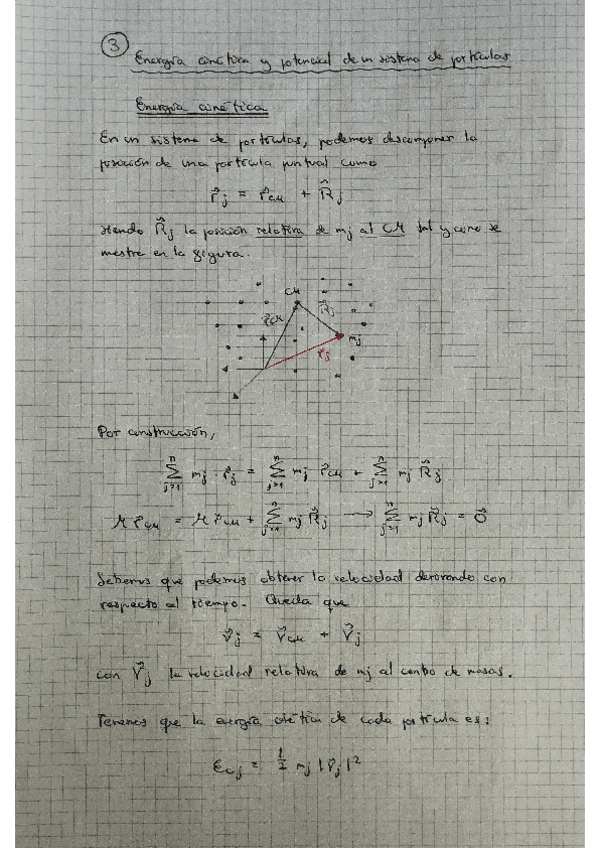 3
Energía cinética y potencial de un sistema de partículas
Energía cinética
En un sistema de partículas, podemos descomponer la
posición de una partícula puntual como
r⃗j = r⃗CM + R⃗j
siendo R⃗j la posición relativa de mj al CM tal y como se
mestre en la figura.
CM
r⃗CM R⃗j
mj
r⃗j
Por construcción,
∑_{j=1}^{n} mj · r⃗j = ∑_{j=1}^{n} mj r⃗CM + ∑_{j=1}^{n} mj R⃗j
M r⃗CM = M r⃗CM + ∑_{j=1}^{n} mj R⃗j → ∑_{j=1}^{n} mj R⃗j = 0⃗
Sabemos que podemos obtener la velocidad derivando con
respecto al tiempo. Queda que
v⃗j = v⃗CM + V⃗j
con V⃗j la velocidad relativa de mj al centro de masas.
Tenemos que la energía cinética de cada partícula es:
Ecj = 1/2 mj |v⃗j|²